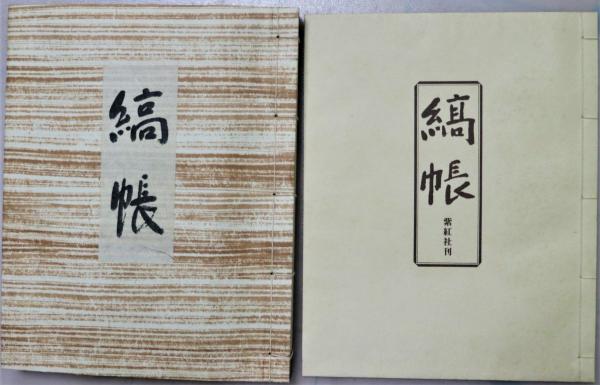 縞帳
縞帳
紫紅社刊